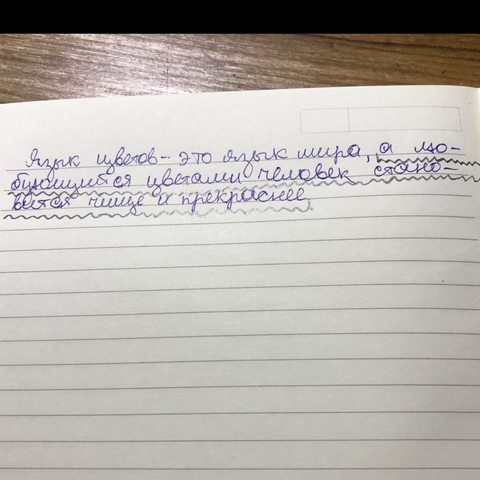 Язык цветов - это язык мира, а лю-
бующийся цветами человек стано-
вится чище и прекраснее.